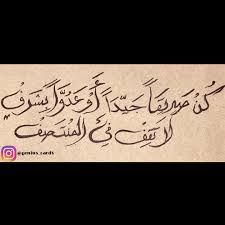 كُن صَدِيقَاً جَيّدَاً أَوعَدُوَّاً بِشَرَفٍ
لَا تَقِفْ فِي المُنْتَصِفْ
@genius_cards